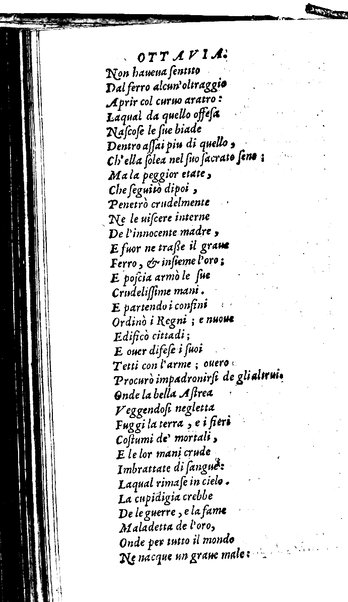 OTTAVIA.
Non haueua ſentito
Dal ferro alcun'oltraggio
Aprir col curuo aratro:
Laqual da quello offeſa
Naſcoſe le ſue biade
Dentro aſſai piu di quello,
Ch'ella ſolea nel ſuo ſacrato ſeno;
Ma la peggior etate,
Che ſeguitò dipoi,
Penetrò crudelmente
Ne le uiſcere interne
De l'innocente madre,
E fuor ne traſſe il graue
Ferro, & inſieme l'oro;
E poſcia armò le ſue
Crudeliſſime mani.
E partendo i confini
Ordinò i Regni; e nuoue
Edificò cittadi;
E ouer difeſe i ſuoi
Tetti con l'arme; ouero
Procurò impadronirſi de gli altrui.
Onde la bella Aſtrea
Veggendoſi negletta
Fuggì la terra, e i fieri
Coſtumi de' mortali,
E le lor mani crude
Imbrattate di ſangue:
Laqual rimaſe in cielo.
La cupidigia crebbe
De le guerre, e la fame
Maladetta de l'oro,
Onde per tutto il mondo
Ne nacque un graue male: